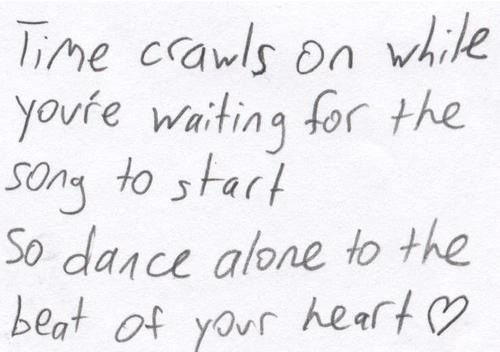 Time crawls on while
you're waiting for the
song to start
So dance alone to the
beat of your heart ♡